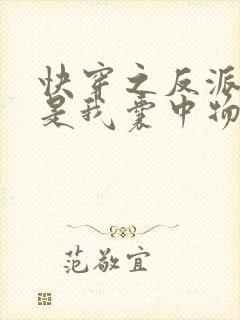 快穿之反派
是我囊中物
范敬宜